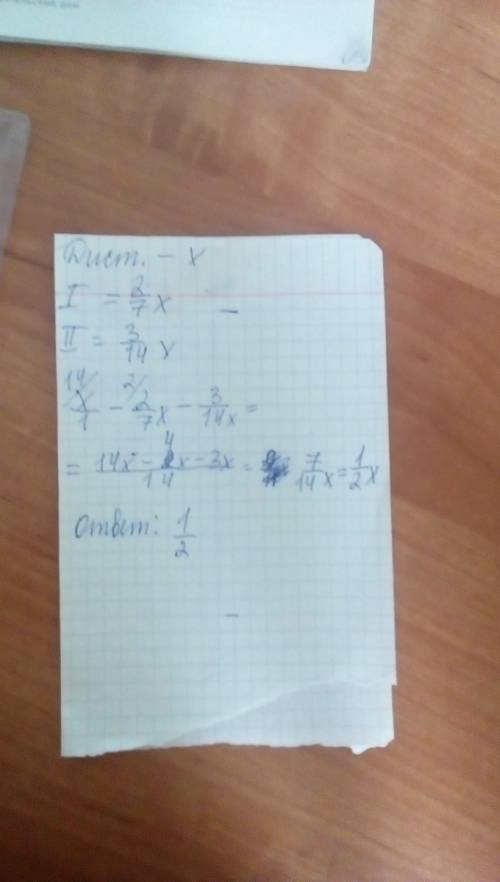 Дист. – x
I = 2/7 x
II = 3/14 x
14/ x/1 – 2/ 2/7 x – 3/14x =
= 14x – 4x – 3x / 14 = 7/14 x = 1/2 x
Ответ: 1/2